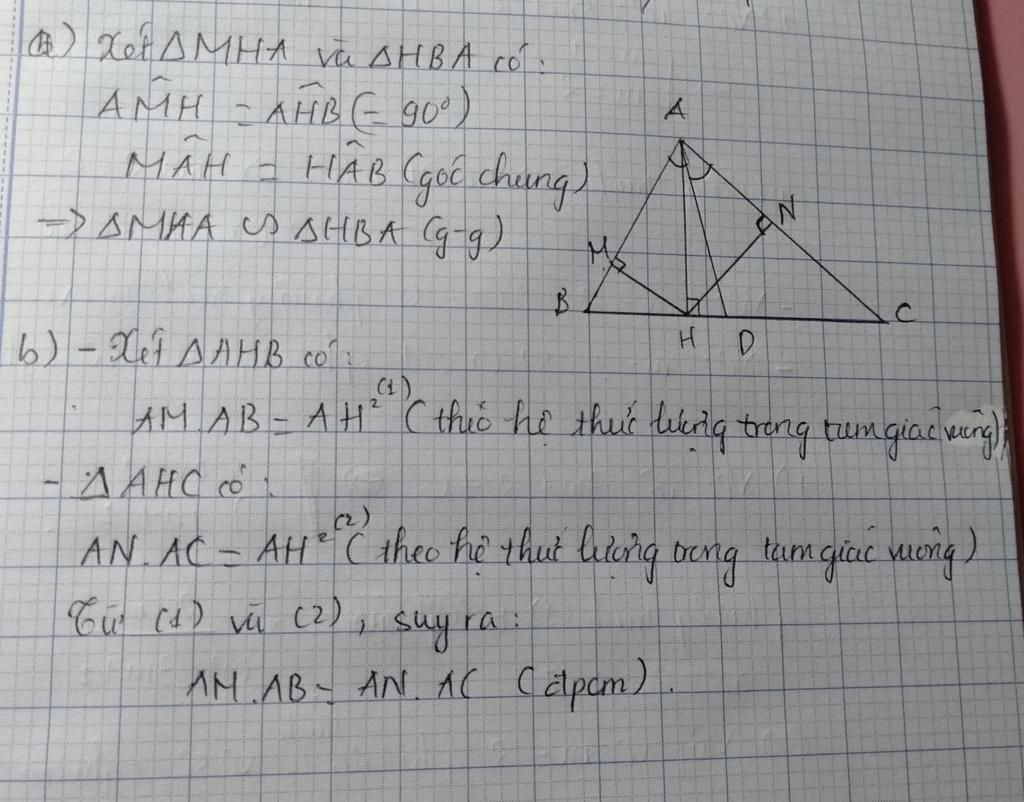 a) Xét ΔMHA và ΔHBA có:
AM̂H = AĤB (= 90°)
MÂH = HÂB (góc chung)
=> ΔMHA ∽ ΔHBA (g-g)
A
N
M
B
C
H D
b) - Xét ΔAHB có:
AM.AB = AH² (1) (theo hệ thức lượng trong tam giác vuông)
- ΔAHC có:
AN.AC = AH² (2) (theo hệ thức lượng trong tam giác vuông)
Từ (1) và (2), suy ra:
AM.AB = AN.AC (đpcm).